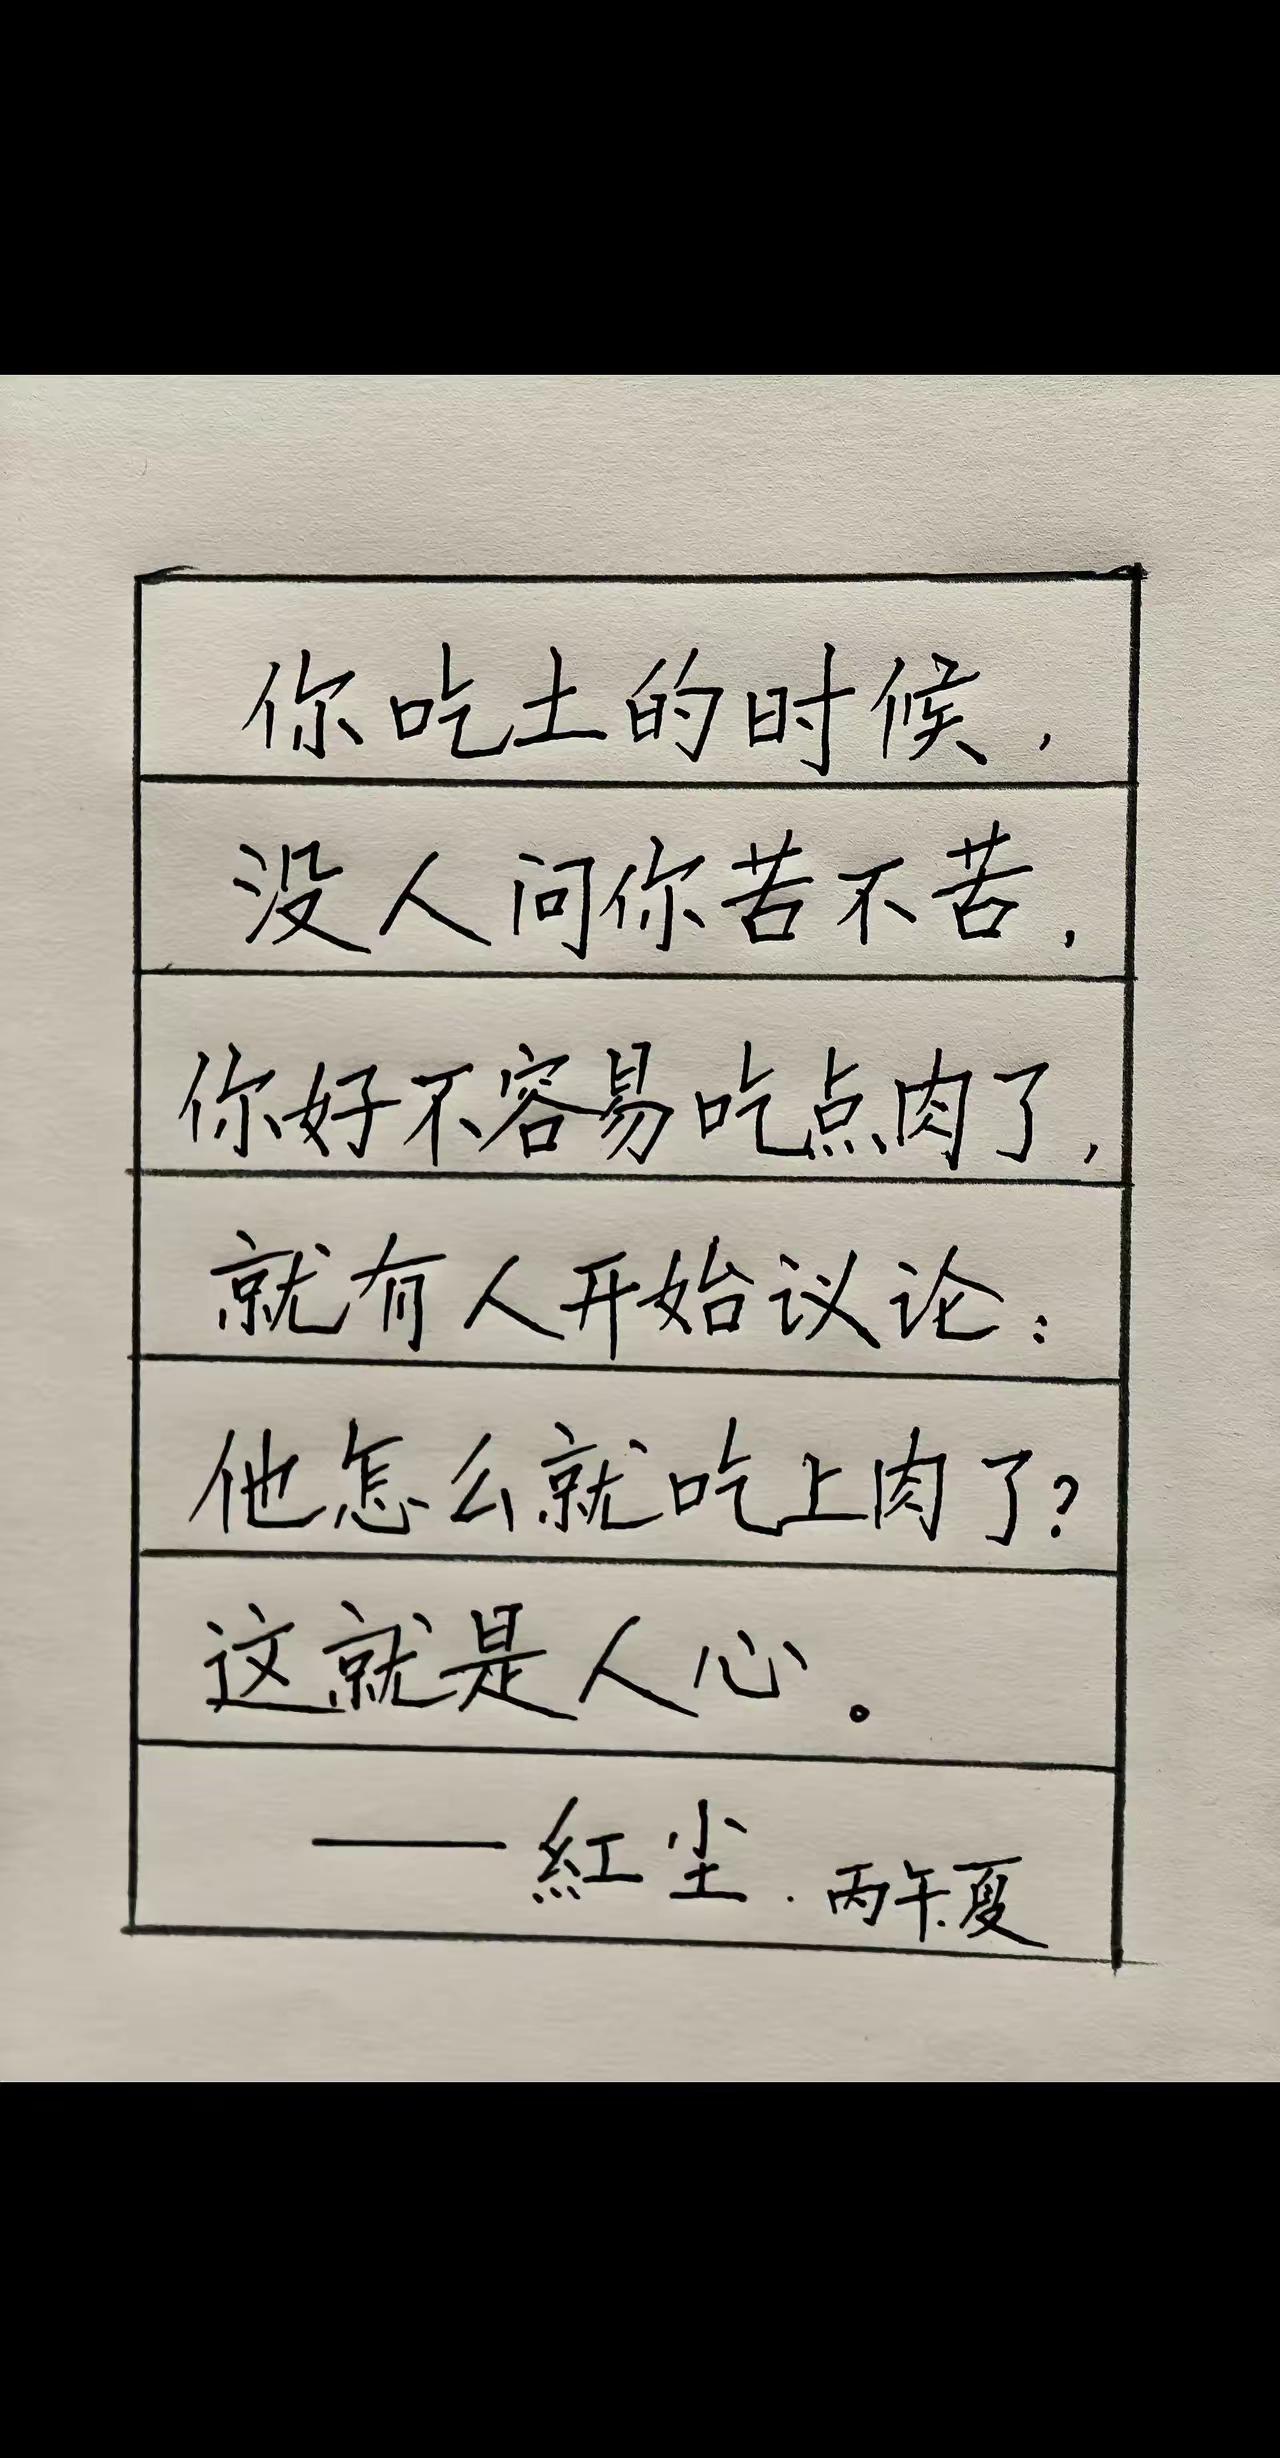 你吃土的时候，
没人问你苦不苦，
你好不容易吃点肉了，
就有人开始议论：
他怎么就吃上肉了？
这就是人心。
——紅尘.丙午.夏